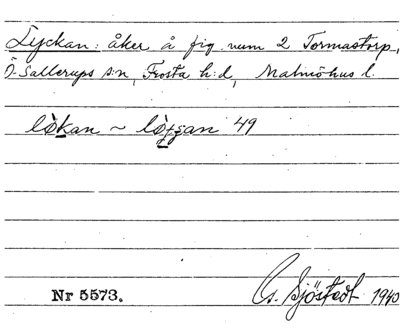 Lyckan: åker å fig. num 2 Tormastorp,
Ö. Sallerups s:n, Frosta h:d, Malmöhus l.
lò̱kan ~ 49
Nr 5573.
G. Sjöstedt 1940